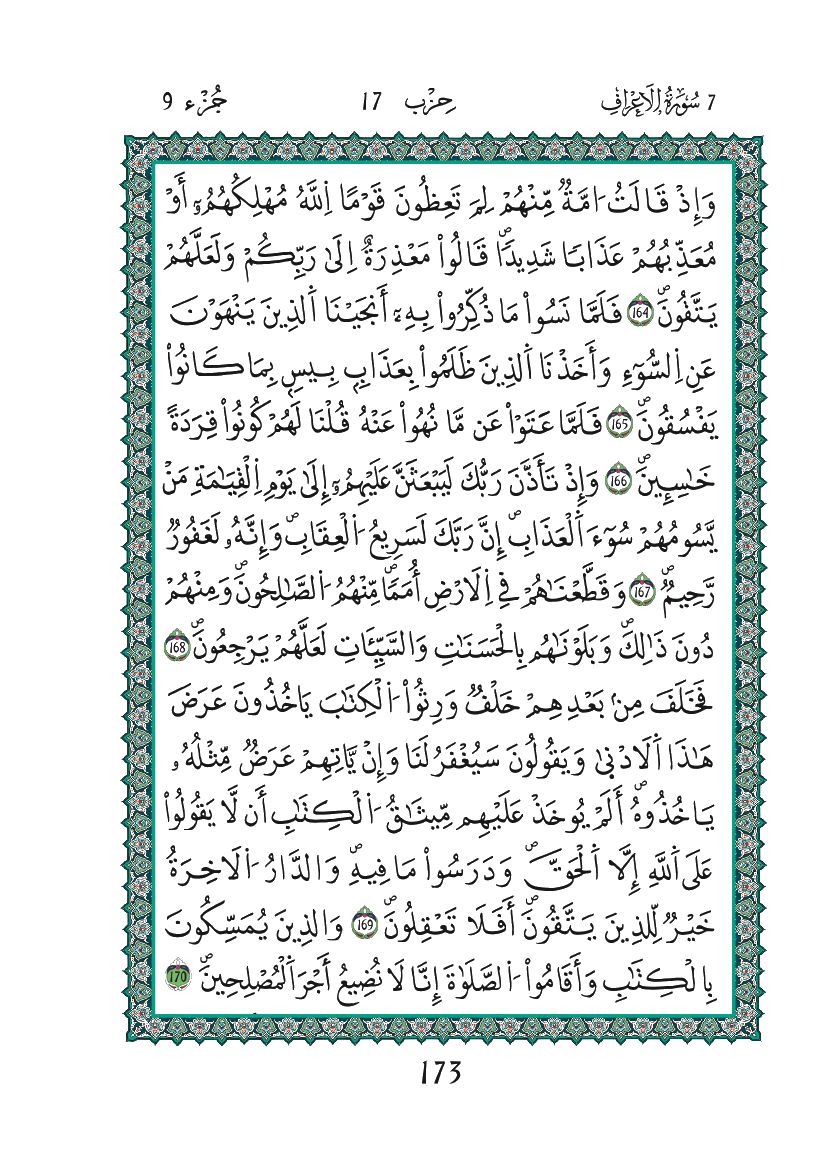 7 سُورَةُ الْأَعْرَافِ حِزْب 17 جُزْء 9
وَإِذْ قَالَتُ امَّةٌ مِّنْهُمْ لِمَ تَعِظُونَ قَوْمًا اِللَّهُ مُهْلِكُهُمُۥٓ أَوْ
مُعَذِّبُهُمْ عَذَابٗا شَدِيدٗاۖ قَالُواْ مَعْذِرَةٌ اِلَىٰ رَبِّكُمْ وَلَعَلَّهُمْ
يَتَّقُونَۖ 164 فَلَمَّا نَسُواْ مَا ذُكِّرُواْ بِهِۦٓ أَنجَيْنَا اَلذِينَ يَنْهَوْنَ
عَنِ اِلسُّوٓءِ وَأَخَذْنَا اَلذِينَ ظَلَمُواْ بِعَذَابِۭ بِيسِۭ بِمَا كَانُواْ
يَفْسُقُونَۖ 165 فَلَمَّا عَتَوْاْ عَن مَّا نُهُواْ عَنْهُ قُلْنَا لَهُمْ كُونُواْ قِرَدَةً
خَٰسِـِٕينَۖ 166 وَإِذْ تَأَذَّنَ رَبُّكَ لَيَبْعَثَنَّ عَلَيْهِمُۥٓ إِلَىٰ يَوْمِ اِلْقِيَٰمَةِ مَنْ
يَّسُومُهُمْ سُوٓءَ اَلْعَذَابِۖ إِنَّ رَبَّكَ لَسَرِيعُ اُلْعِقَابِۖ وَإِنَّهُۥ لَغَفُورٞ
رَّحِيمٞۖ 167 وَقَطَّعْنَٰهُمْ فِي اِلَارْضِ أُمَمٗاۖ مِّنْهُمُ اُلصَّٰلِحُونَۖ وَمِنْهُمْ
دُونَ ذَٰلِكَۖ وَبَلَوْنَٰهُم بِالْحَسَنَٰتِ وَالسَّيِّـَٔاتِ لَعَلَّهُمْ يَرْجِعُونَۖ 168
فَخَلَفَ مِنۢ بَعْدِهِمْ خَلْفٞ وَرِثُواْ اُلْكِتَٰبَ يَاخُذُونَ عَرَضَ
هَٰذَا اَلَادْنَىٰ وَيَقُولُونَ سَيُغْفَرُ لَنَا وَإِنْ يَّاتِهِمْ عَرَضٞ مِّثْلُهُۥ
يَاخُذُوهُۖ أَلَمْ يُوخَذْ عَلَيْهِم مِّيثَٰقُ اُلْكِتَٰبِ أَن لَّا يَقُولُواْ
عَلَى اَللَّهِ إِلَّا اَلْحَقَّۖ وَدَرَسُواْ مَا فِيهِۖ وَالدَّارُ اُلَاخِرَةُ
خَيْرٞ لِّلذِينَ يَتَّقُونَۖ أَفَلَا تَعْقِلُونَۖ 169 وَالذِينَ يُمَسِّكُونَ
بِالْكِتَٰبِ وَأَقَامُواْ اُلصَّلَوٰةَ إِنَّا لَا نُضِيعُ أَجْرَ اَلْمُصْلِحِينَۖ 170
173